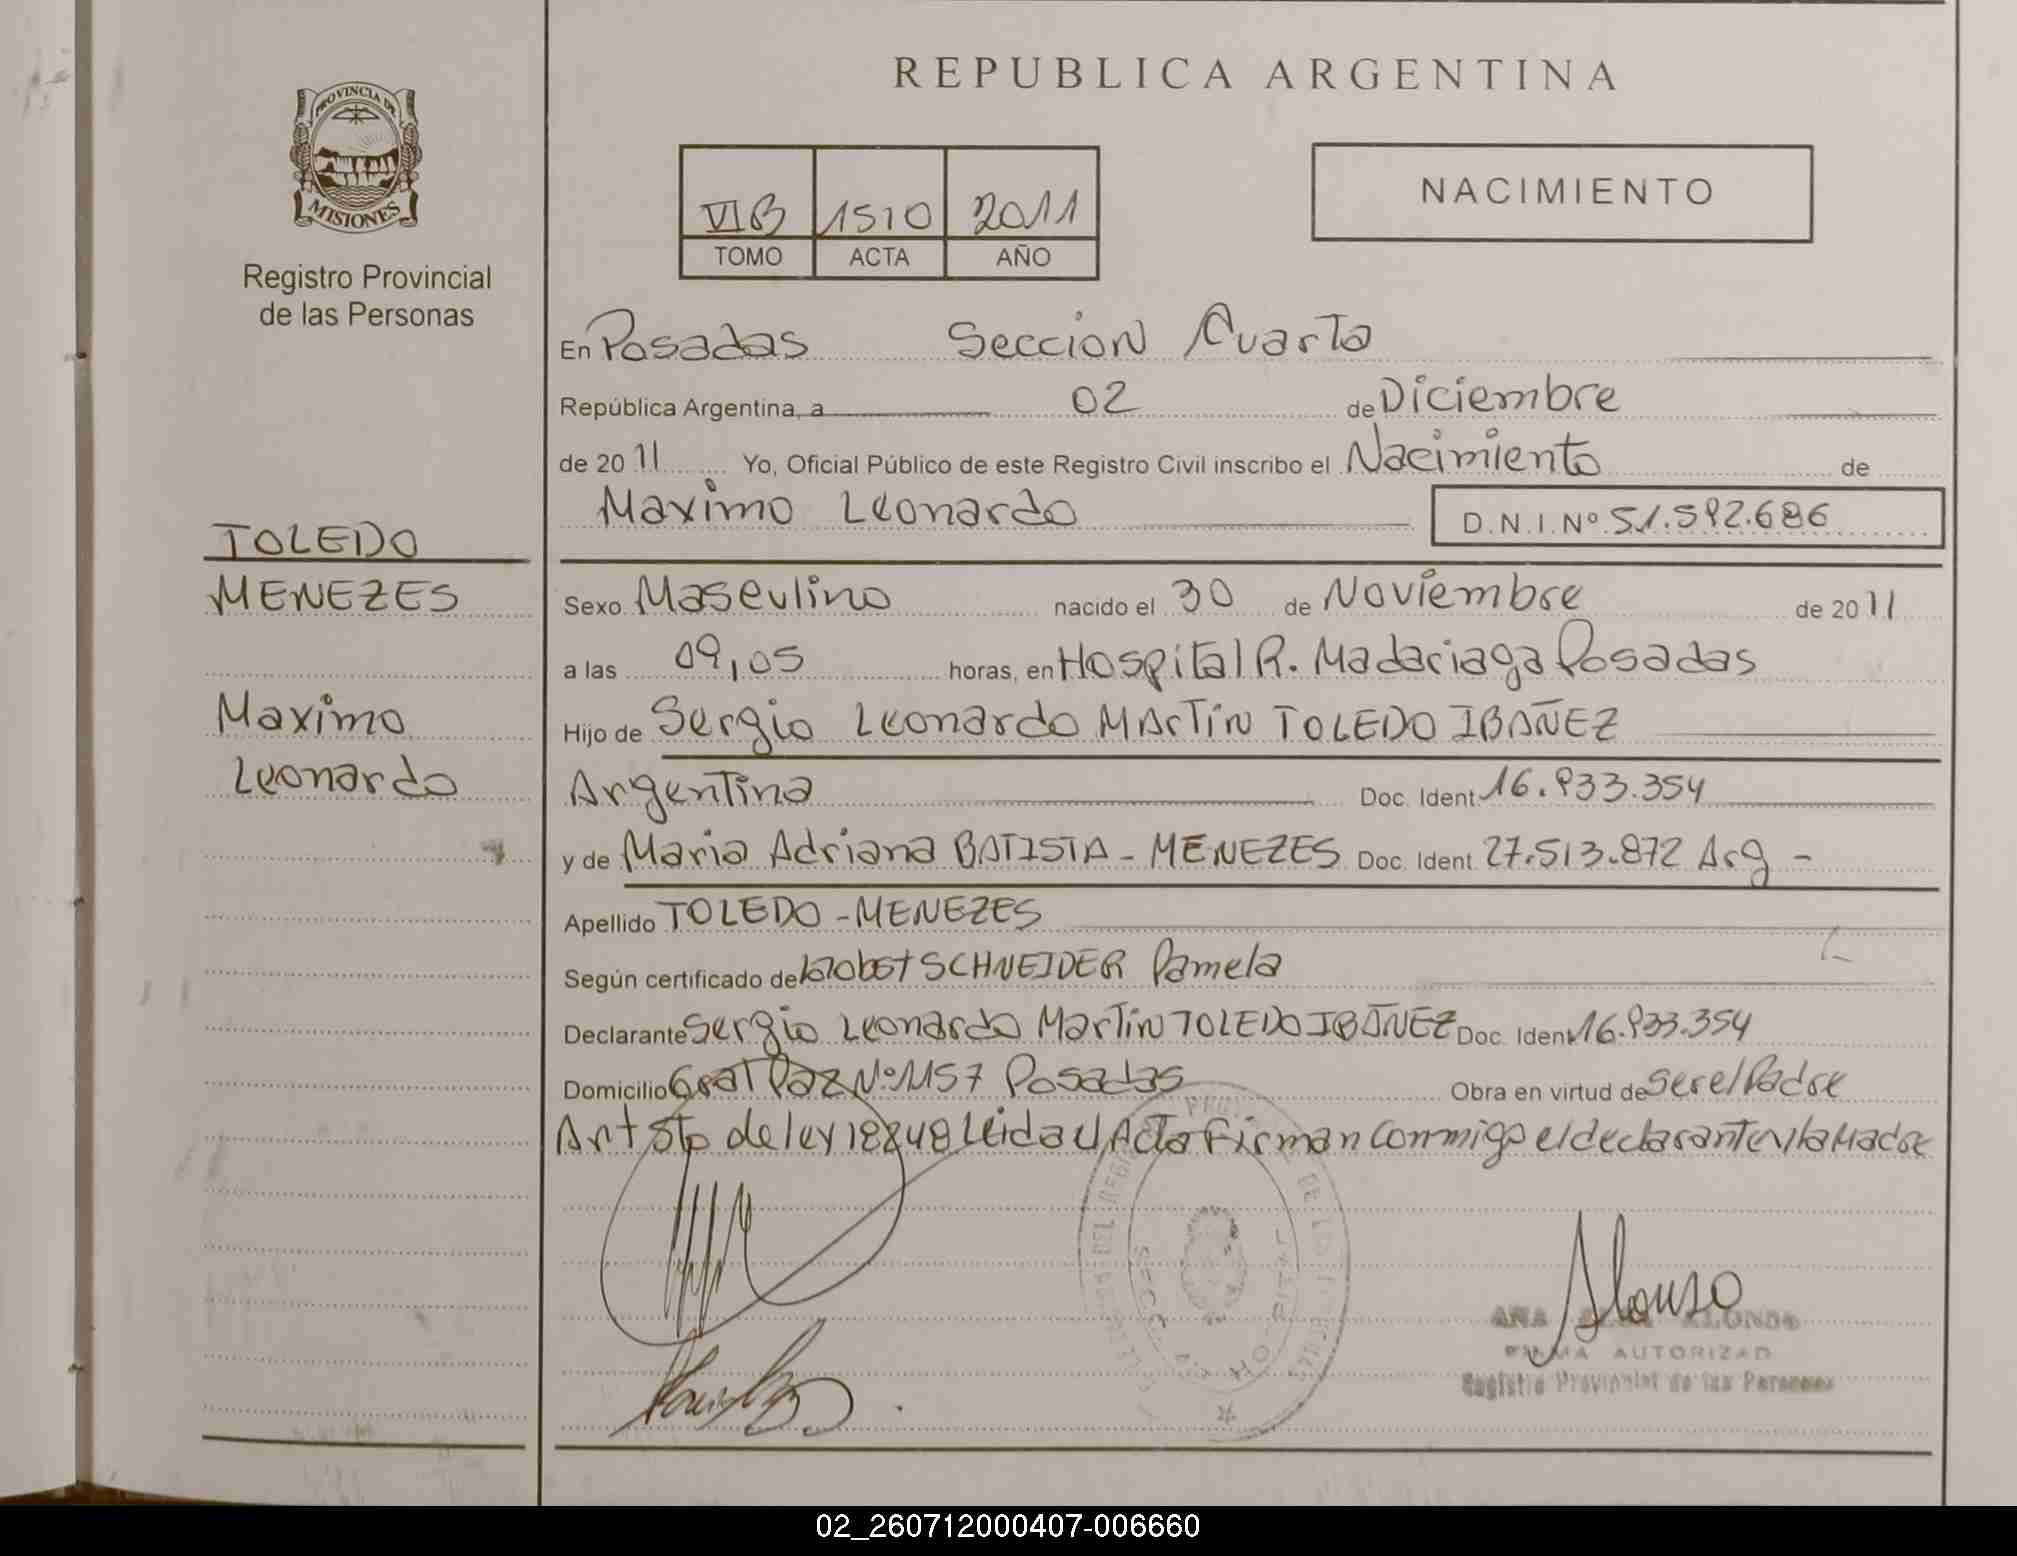 PROVINCIA DE
MISIONES
Registro Provincial
de las Personas
TOLEDO
MENEZES
Maximo
Leonardo
REPUBLICA ARGENTINA
VIB 1510 2011
TOMO ACTA AÑO
NACIMIENTO
En Posadas Seccion Cuarta
República Argentina, a 02 de Diciembre
de 20 11 Yo, Oficial Público de este Registro Civil inscribo el Nacimiento de
Maximo Leonardo D.N.I. Nº 51.592.686
Sexo Masculino nacido el 30 de Noviembre de 20 11
a las 09,05 horas, en Hospital R. Madariaga Posadas
Hijo de Sergio Leonardo MArTiN TOLEDO IBAÑEZ
Argentina Doc. Ident 16.933.354
y de Maria Adriana BATISTA - MENEZES Doc. Ident. 27.513.872 Arg -
Apellido TOLEDO - MENEZES
Según certificado de SCHNEIDER Pamela
Declarante Sergio Leonardo Martin TOLEDO IBAÑEZ Doc. Ident 16.933.354
Domicilio Gral Paz Nº 1157 Posadas Obra en virtud de ser el Padre
Art 5to de ley 18248 Leida el Acta Firman conmigo el declarante y la Madre
Alonso
ANA ALONSO
FIRMA AUTORIZAD
Registro Provincial de las Personas
02_260712000407-006660